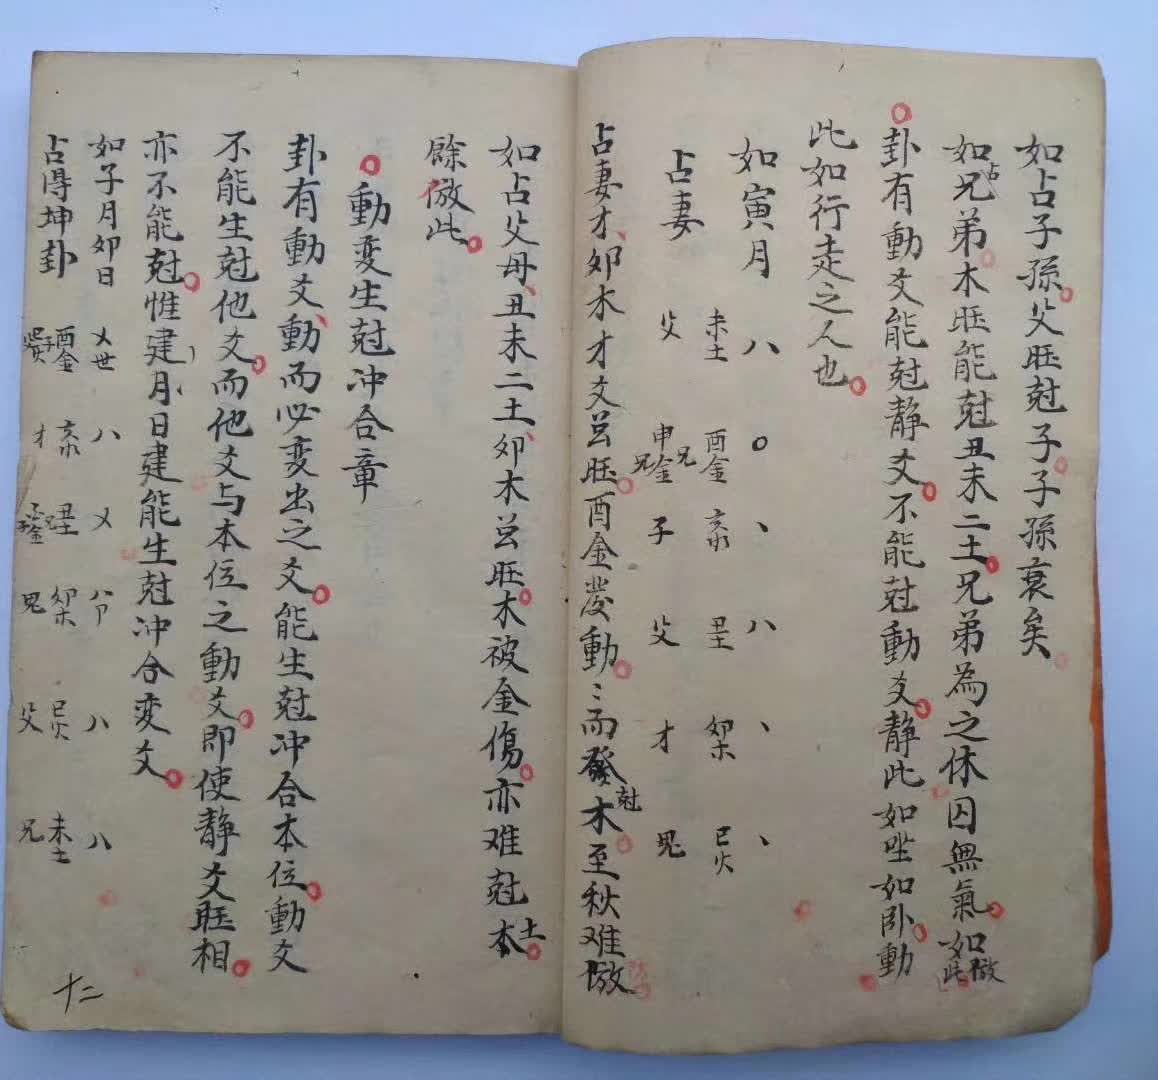 如占子孫父旺尅子子孫衰矣
如占兄弟木旺能尅丑未二土兄弟為之休囚無氣如此倣
卦有動爻能尅静爻不能尅動爻静此如坐如卧動
此如行走之人也
如寅月
占妻
未土 酉金 亥水 丑土 卯木 巳火
父 申金 兄 子 父 才 鬼
占妻才卯木才爻呂旺酉金發動〻而發尅木至秋难倣
如占父母丑未二土卯木呂旺木被金傷亦难尅本土
餘倣此
動变生尅冲合章
卦有動爻動而必变出之爻能生尅冲合本位動爻
不能生尅他爻而他爻与本位之動爻即使静爻旺相
亦不能尅惟建月日建能生尅冲合変爻
如子月卯日
占得坤卦
世
酉金 亥水 丑土 卯木 巳火 未土
才 鬼 父 兄
十二